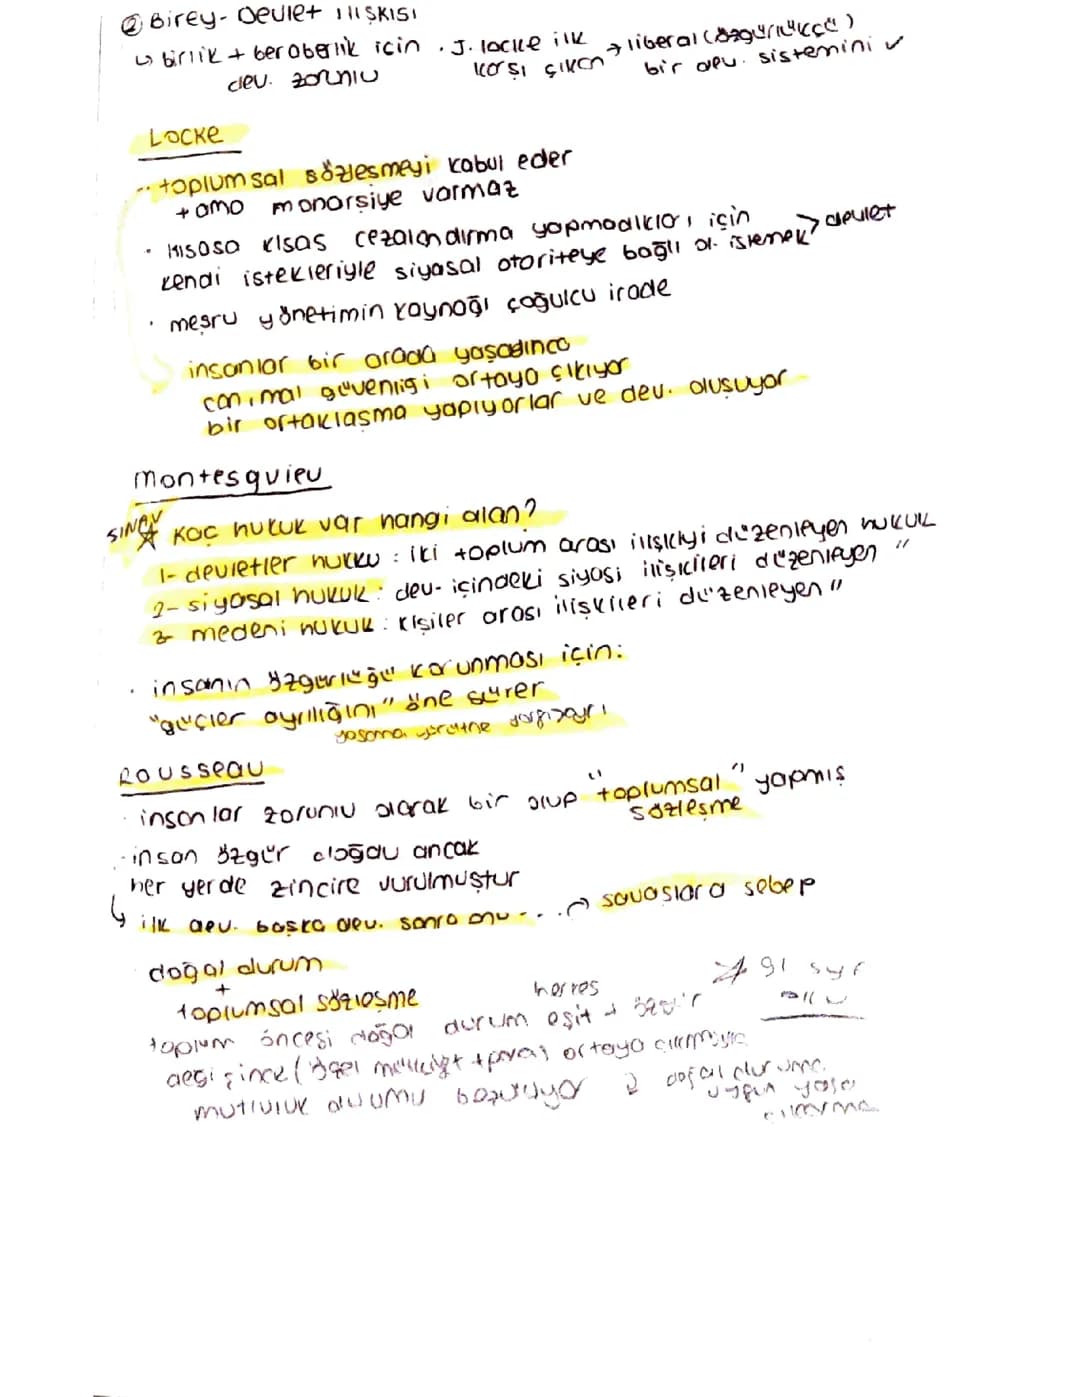 ② Birey- Devlet ilişkisi
↳ birlik + beraberlik için · J. locke ilk → liberal (özgürlükçü)
dev. zorunlu karşı çıkan bir dev. sistemini ✓
Locke
·· toplumsal sözleşmeyi kabul eder
+ ama monarşiye varmaz
· kısasa kısas cezalandırma yapmadıkları için
kendi istekleriyle siyasal otoriteye bağlı ol. istemek > devlet
· meşru yönetimin kaynağı çoğulcu irade
insanlar bir arada yaşadınca
can, mal güvenliği ortaya çıkıyor
bir ortaklaşma yapıyorlar ve dev. oluşuyor
Montesquieu
SINAV ☆ Kaç hukuk var hangi alan?
1- devletler hukku : iki toplum arası ilişkiyi düzenleyen hukuk
2- siyasal hukuk : dev- içindeki siyasi ilişkileri düzenleyen "
3- medeni hukuk : kişiler arası ilişkileri düzenleyen "
· insanın özgürlüğü korunması için:
"güçler ayrılığını" öne sürer
yasama yürütme yargı ayrı
Rousseau
· insanlar zorunlu olarak bir olup "toplumsal" yapmış
sözleşme
· insan özgür doğdu ancak
her yerde zincire vurulmuştur
↳ ilk dev. başka dev. sonra onu ... → savaşlara sebep
doğal durum
+
toplumsal sözleşme
herkes
toplum öncesi doğal durum eşit + özgür
mutluluk durumu bozuluyor
doğal duruma
uygun yasa